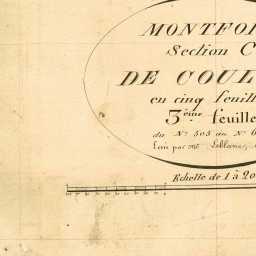 MONTFO
Section C
DE COUL
en cinq feuill
3ème feuille
du N° 505 au N° 6
Levé par Mr Leblanc,
Echelle de 1 à 20